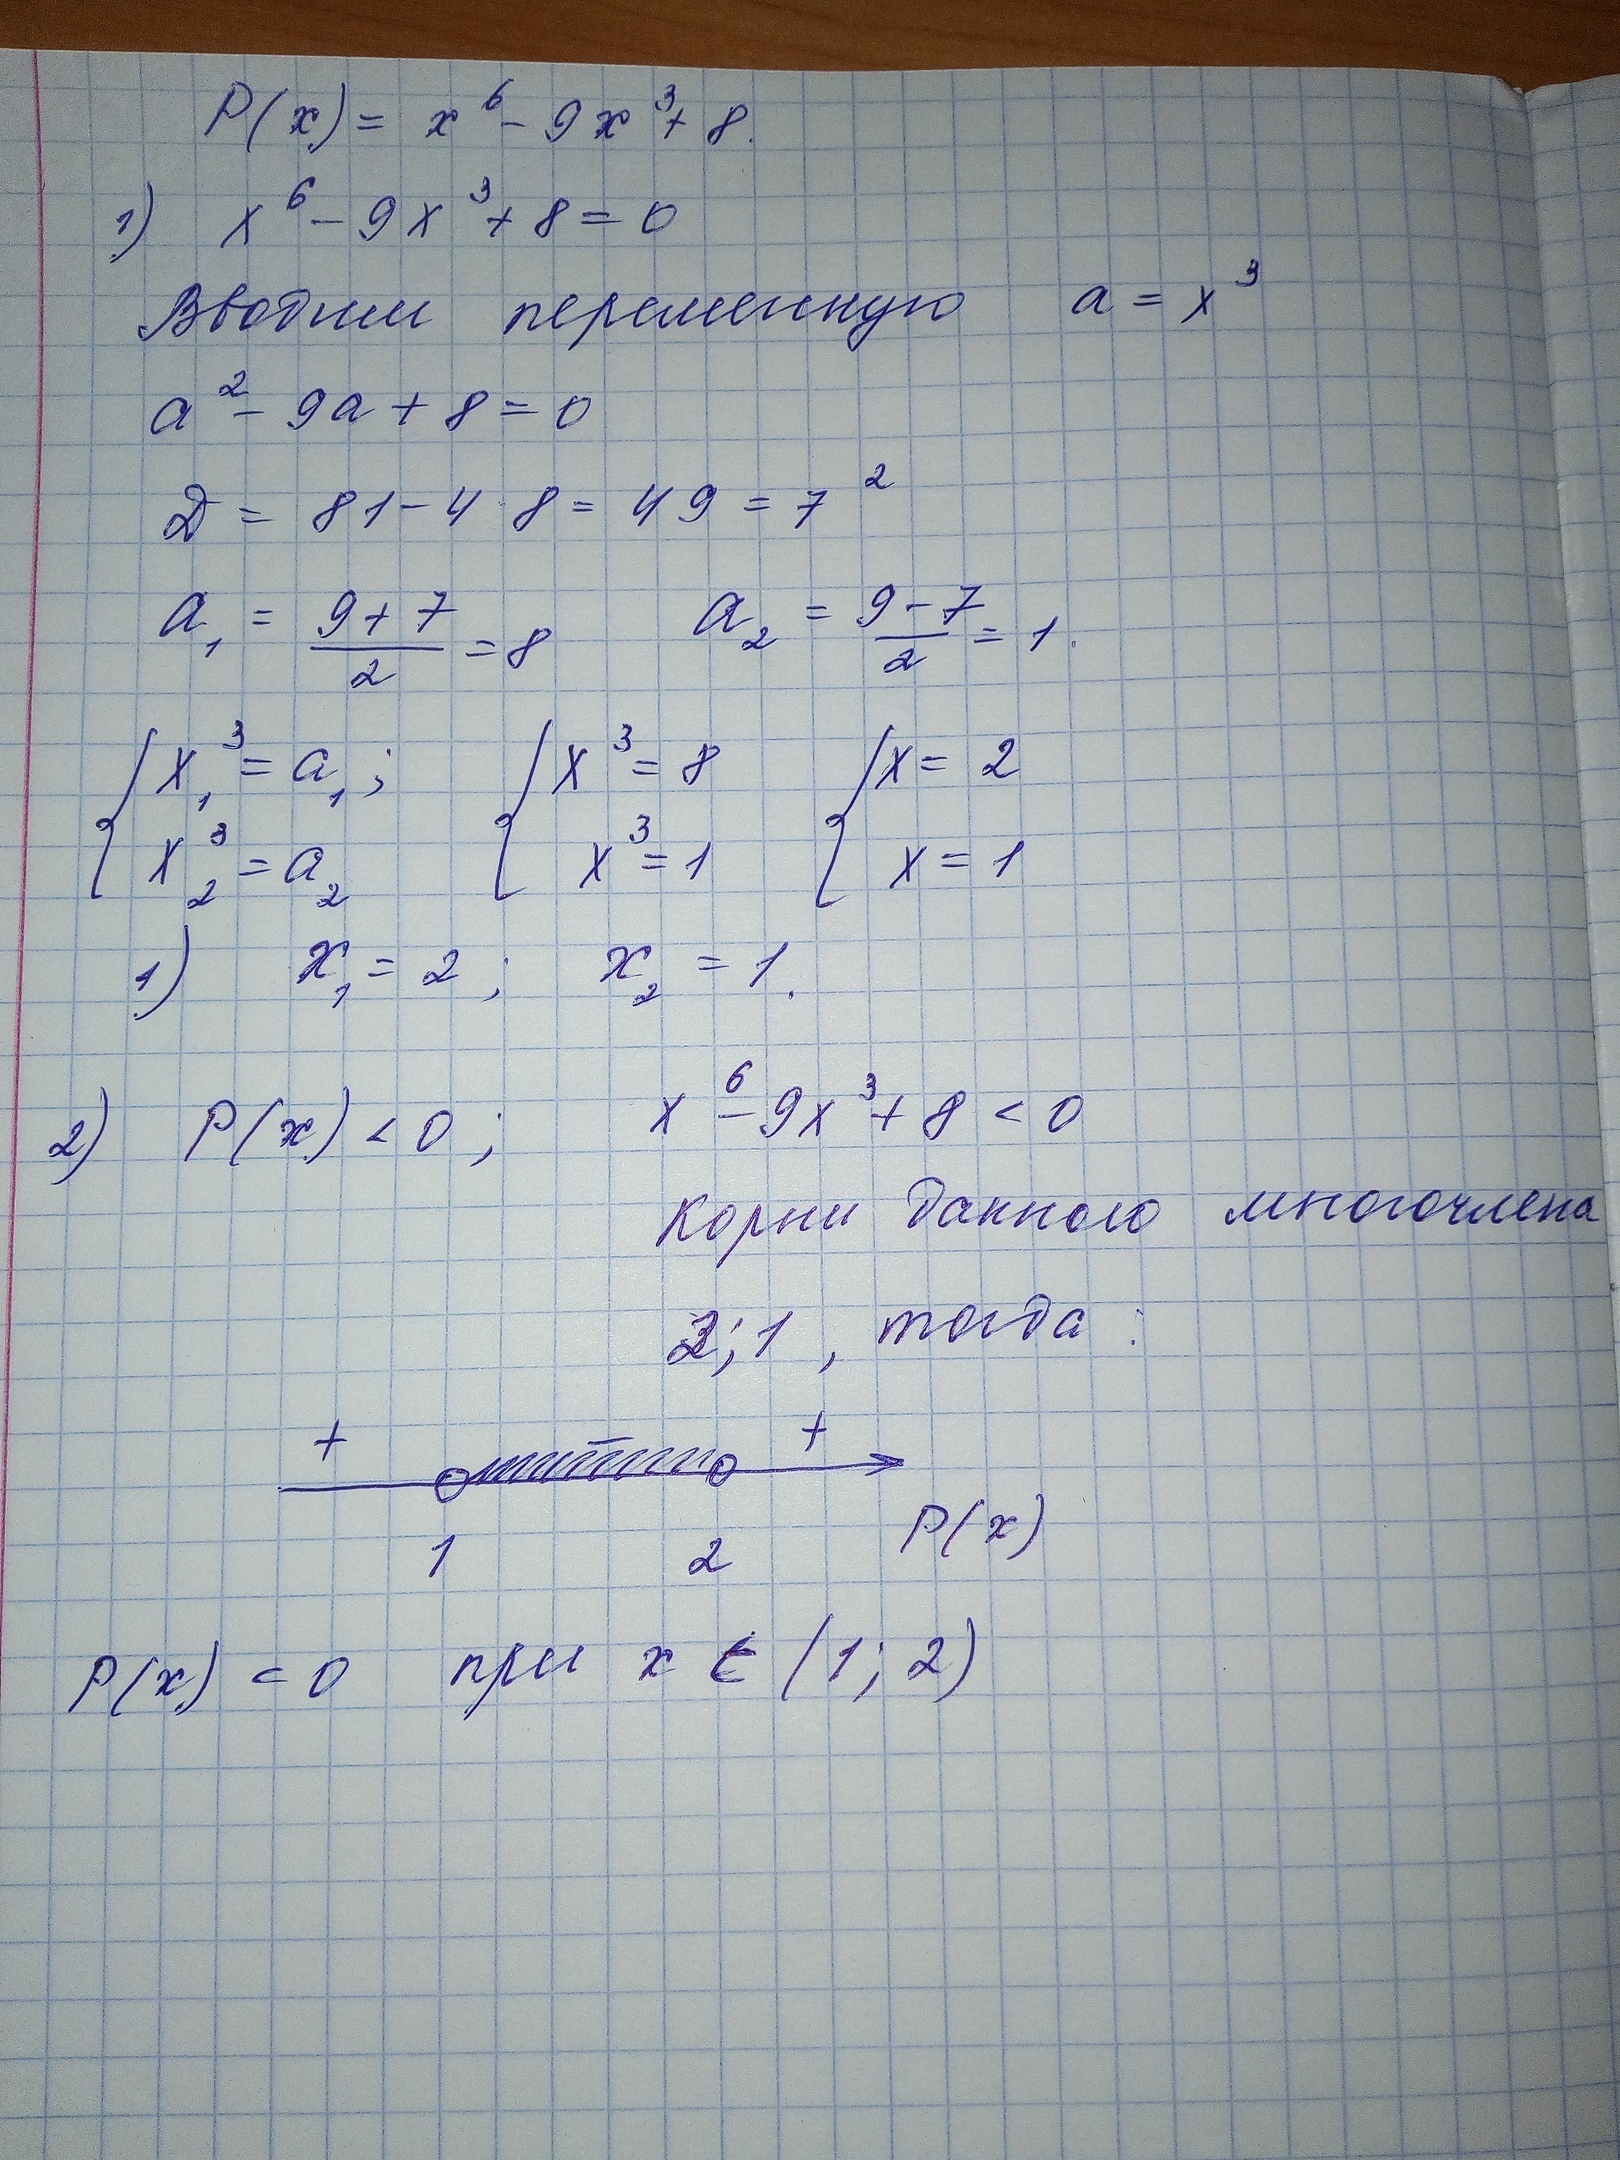 P(x) = x⁶ - 9x³ + 8.
1) x⁶ - 9x³ + 8 = 0
Вводим переменную a = x³
a² - 9a + 8 = 0
Д = 81 - 4 · 8 = 49 = 7²
a₁ = (9 + 7)/2 = 8 a₂ = (9 - 7)/2 = 1.
{ x₁³ = a₁; { x³ = 8 { x = 2
x₂³ = a₂ x³ = 1 x = 1
1) x₁ = 2; x₂ = 1.
2) P(x) < 0; x⁶ - 9x³ + 8 < 0
Корни данного многочлена
2; 1, тогда:
+ - +
1 2 P(x)
P(x) < 0 при x ∈ (1; 2)